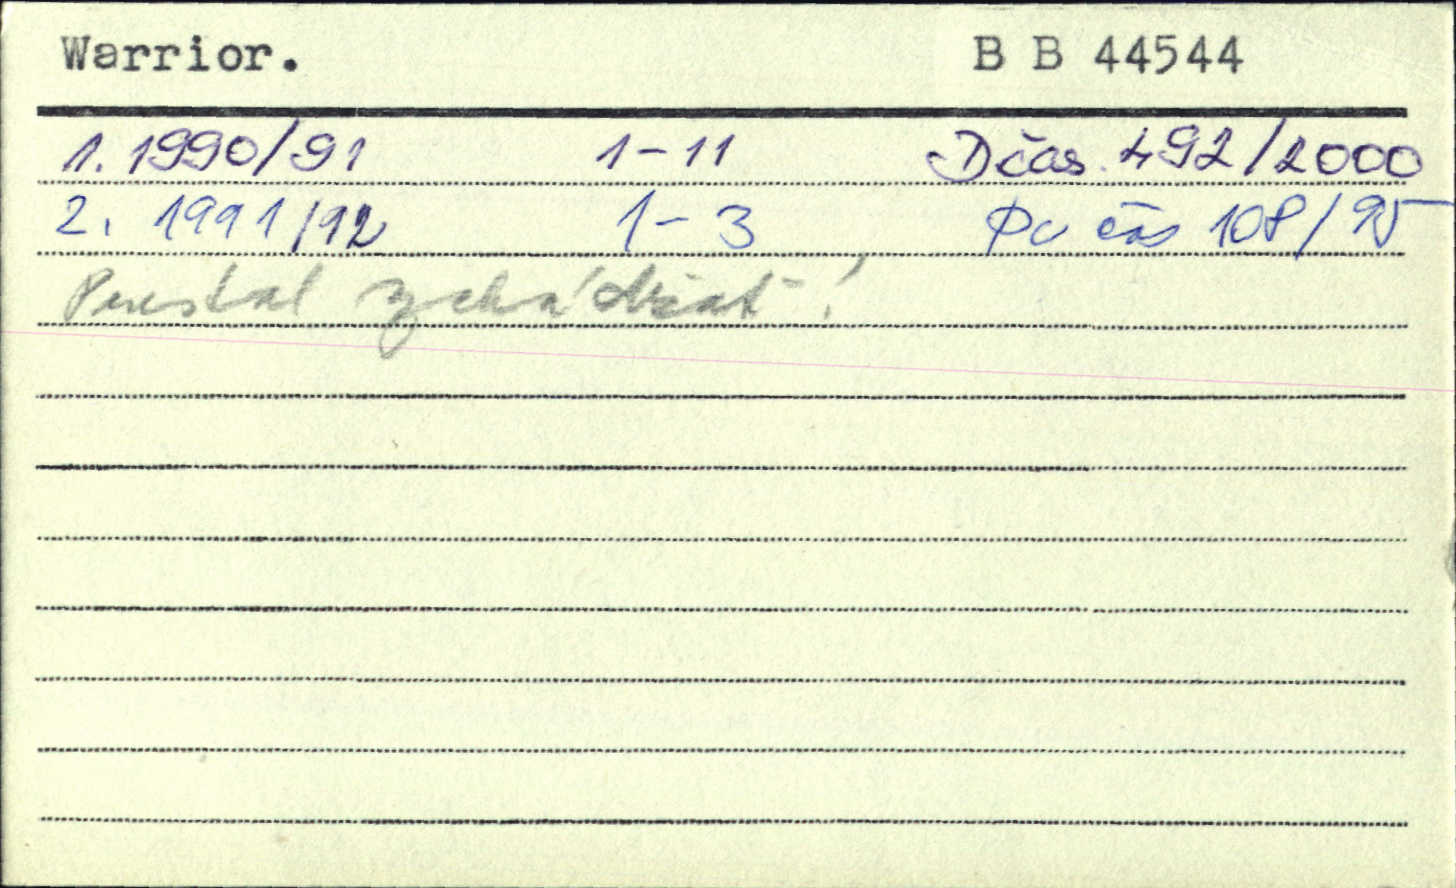 Warrior. B B 44544
1. 1990/91 1-11 Dčas. 492/2000
2. 1991/92 1-3 Dv čas 108/95
Prestal vychádzať!